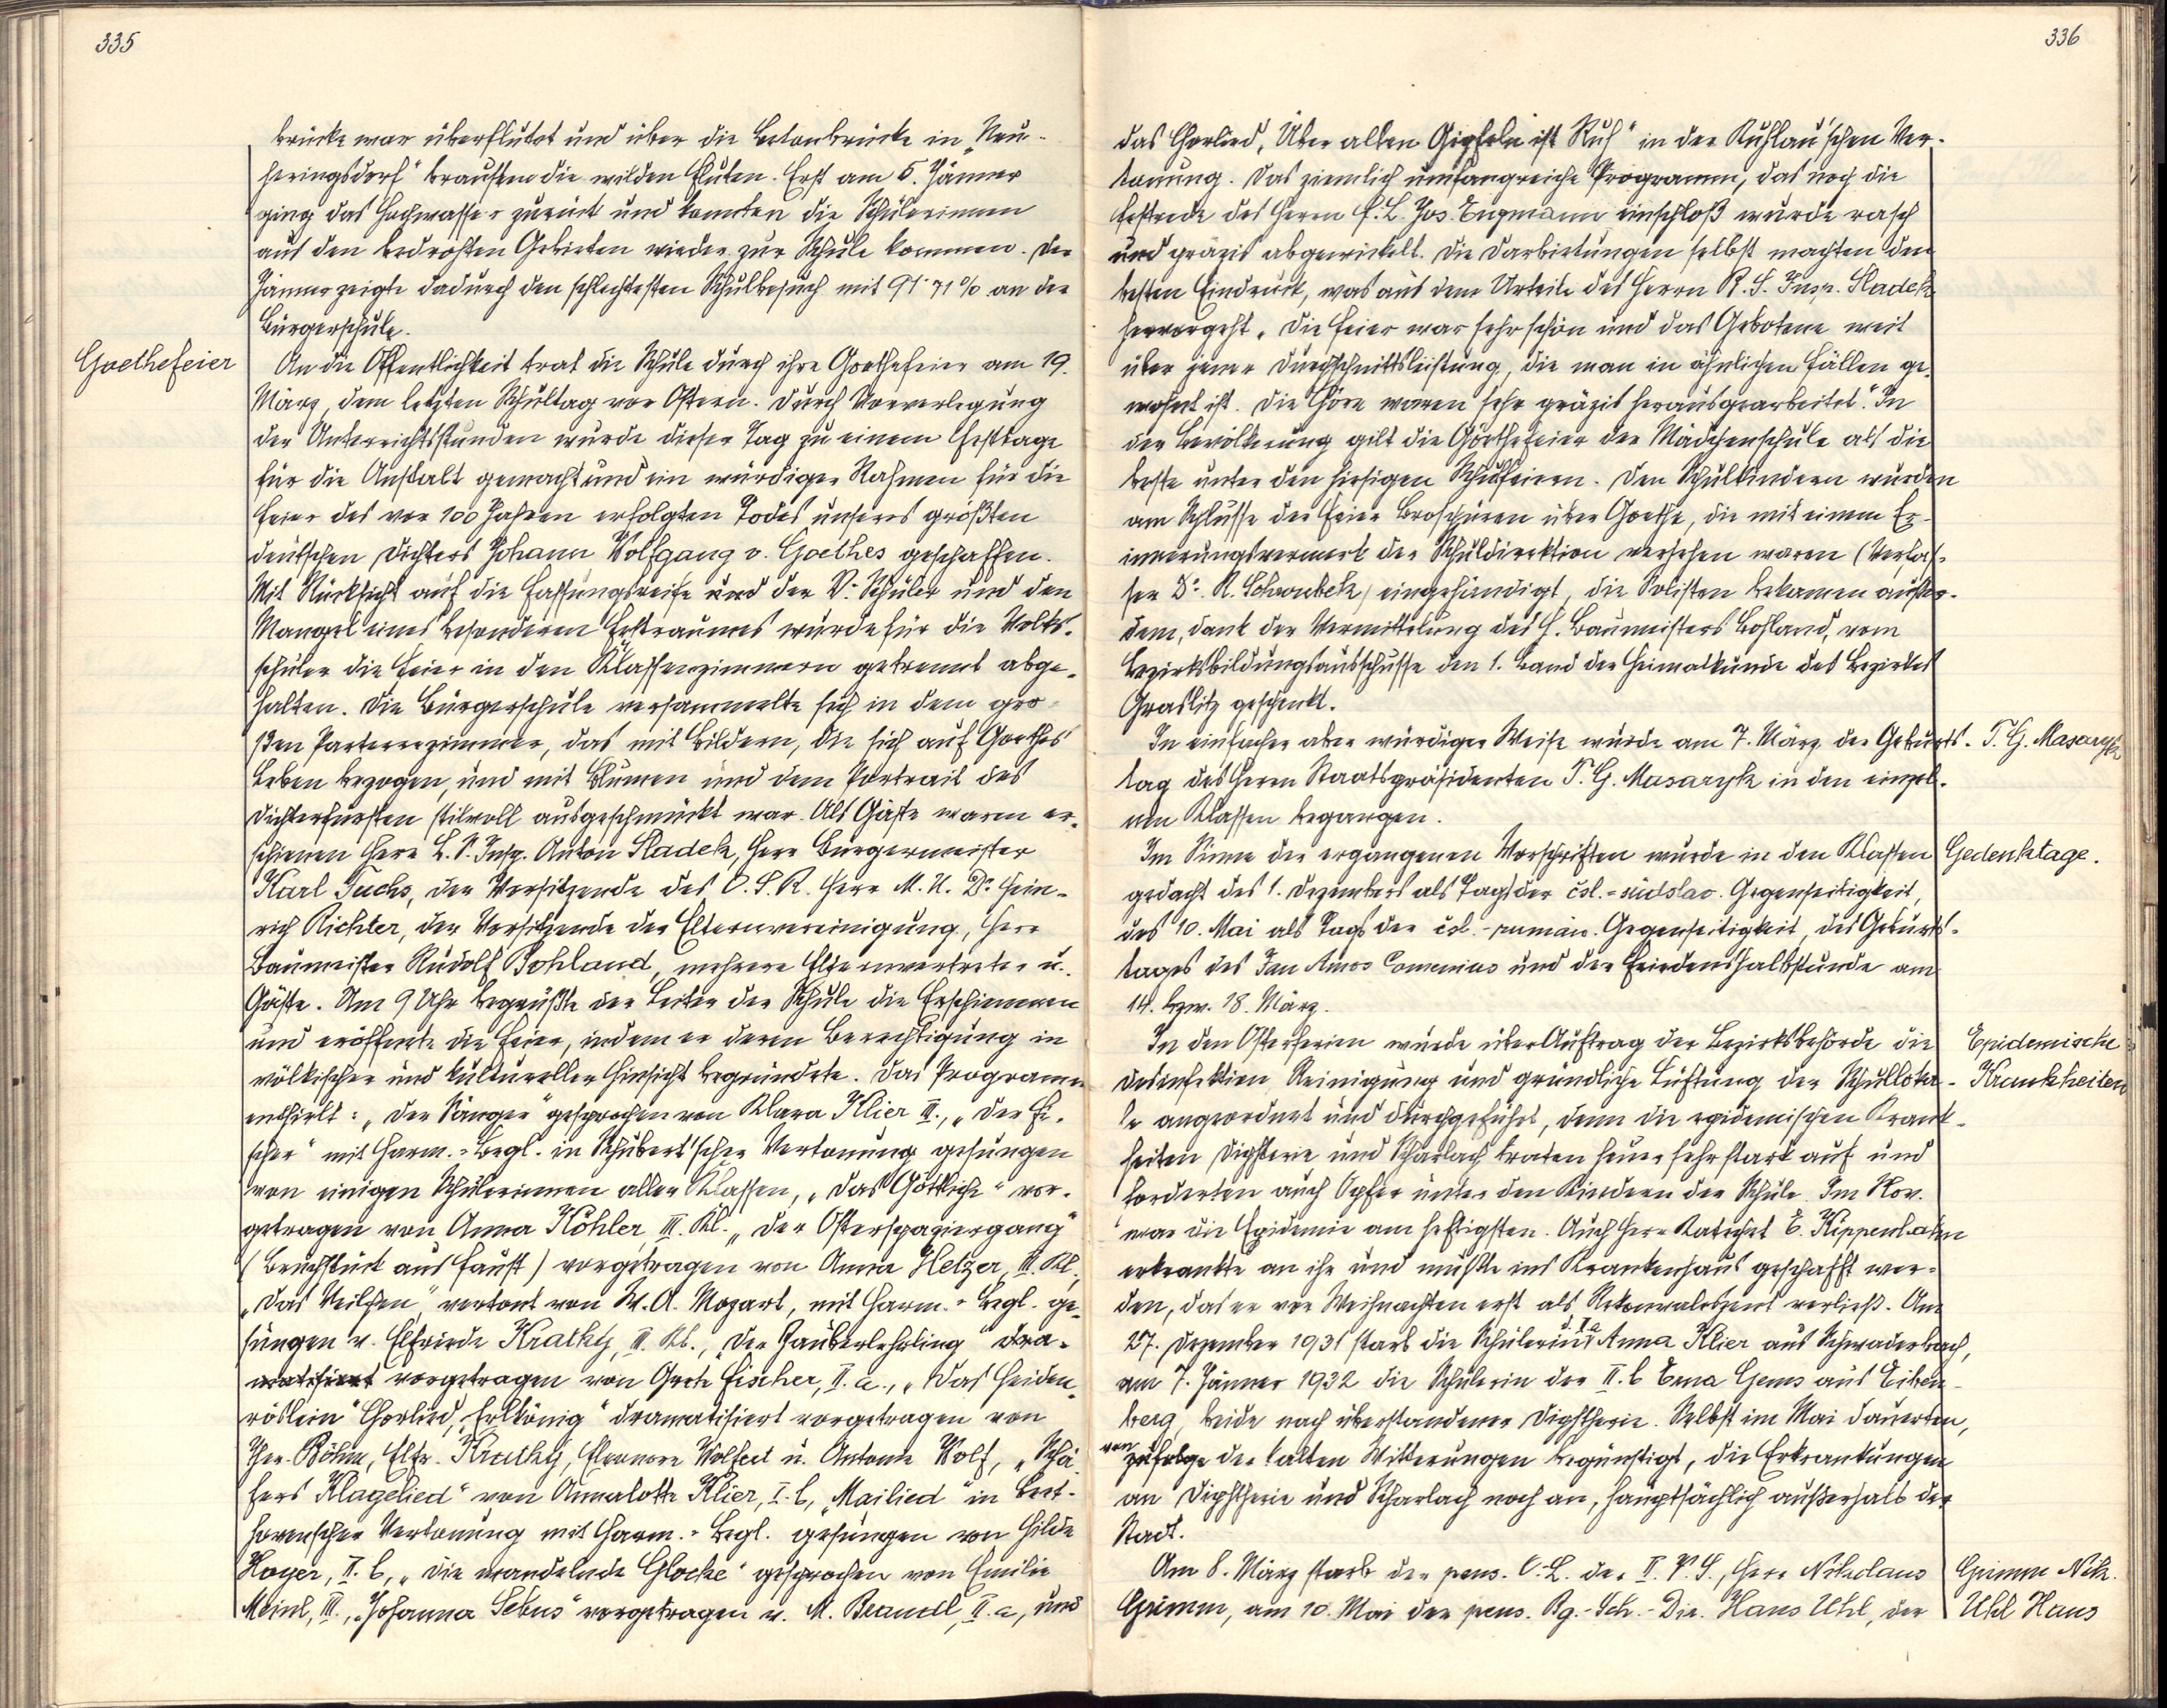 335
brücke war überflutet und über die Betonbrücke in „Neu-
heringsdorf“ brausten die wilden Fluten. Erst am 5. Jänner
ging das Hochwasser zurück und konnten die Schülerinnen
aus den bedrohten Gebieten wieder zur Schule kommen. Der
Jänner zeigte dadurch den schlechtesten Schulbesuch mit 91·71% an der
Bürgerschule.
Goethefeier
An die Öffentlichkeit trat die Schule durch ihre Goethefeier am 19.
März, dem letzten Schultag vor Ostern. Durch Vorverlegung
der Unterrichtsstunden wurde dieser Tag zu einem Festtage
für die Anstalt gemacht und ein würdiger Rahmen für die
Feier des vor 100 Jahren erfolgten Todes unseres größten
deutschen Dichters Johann Wolfgang v. Goethes geschaffen.
Mit Rücksicht auf die Fassungsreife und der V. Schüler und den
Mangel eines besonderen Festraumes wurde für die Volks-
schüler die Feier in den Klassenzimmern getrennt abge-
halten. Die Bürgerschule versammelte sich in dem gro-
ßen Parterrezimmer, das mit Bildern, die sich auf Goethes
Leben bezogen, und mit Blumen und dem Portrait des
Dichterfürsten stilvoll ausgeschmückt war. Als Gäste waren er-
schienen Herr B. S. Insp. Anton Sladek, Herr Bürgermeister
Karl Fuchs, der Vorsitzende des O. S. R. Herr M. U. Dr. Hein-
rich Richter, der Vorsitzende der Elternvereinigung, Herr
Baumeister Rudolf Bohland, mehrere Elternvertreter u.
Gäste. Um 9 Uhr begrüßte der Leiter der Schule die Erschienenen
und eröffnete die Feier, indem er deren Berechtigung in
völkischer und kultureller Hinsicht begründete. Das Programm
enthielt: „Der Sänger“ gesprochen von Klara Klier III., „Der Fi-
scher“ mit Harm.-Begl. in Schubert'scher Vertonung gesungen
von einigen Schülerinnen aller Klassen, „Das Göttliche“ vor-
getragen von Anna Köhler III. Kl. „Der Osterspaziergang“
(Bruchstück aus Faust) vorgetragen von Anna Hetzer, III. Kl.,
„Das Veilchen“, vertont von W. A. Mozart, mit Harm.-Begl. ge-
sungen v. Elfriede Kratky, III. Kl., „Der Zauberlehrling“ dra-
matisiert vorgetragen von Grete Fischer, II. a., „Das Heiden-
röslein“ Chorlied, „Erlkönig“ dramatisiert vorgetragen von
Ther. Böhm, Elfr. Kratky, Eleonore Wolfert u. Antonie Wolf, „Schä-
fers Klagelied“ von Annalotte Klier, I. b, „Mailied“ in Beet-
hovenscher Vertonung mit Harm.-Begl. gesungen von Hilde
Hoyer, II. b, „Die wandelnde Glocke“ gesprochen von Emilie
Meinl, III., „Johanna Sebus“ vorgetragen v. M. Brandl, II. a, und
336
das Chorlied, „Über allen Gipfeln ist Ruh“ in der Kuhlau'schen Ver-
tonung. Das ziemlich umfangreiche Programm, das noch die
Festrede des Herrn F. L. Jos. Engmann einschloß wurde rasch
und präzis abgewickelt. Die Darbietungen selbst machten den
besten Eindruck, was aus dem Urteile des Herrn B. S. Insp. Sladek
hervorgeht. „Die Feier war sehr schön und das Gebotene weit
über jener Durchschnittsleistung, die man in ähnlichen Fällen ge-
wohnt ist. Die Chöre waren sehr präzis herausgearbeitet.“ In
der Bevölkerung gilt die Goethefeier der Mädchenschule als die
beste unter den hiesigen Schulfeiern. Den Schulkindern wurden
am Schlusse der Feier Broschüren über Goethe, die mit einem Er-
innerungsvermerk der Schuldirektion versehen waren (Verfas-
ser Dr. R. Schroubek) eingehändigt, die Solisten bekamen außer-
dem, dank der Vermittelung des H. Baumeisters Bohland, vom
Bezirksbildungsausschusse den 1. Band der Heimatkunde des Bezirkes
Graslitz geschenkt.
In einfacher aber würdiger Weise wurde am 7. März der Geburts-
T. G. Masaryk
tag des Herrn Staatspräsidenten T. G. Masaryk in den einzel-
nen Klassen begangen.
Im Sinne der ergangenen Vorschriften wurde in den Klassen
Gedenktage.
gedacht des 1. Dezembers als Tags der čsl.-südslav. Gegenseitigkeit,
des 10. Mai als Tags der čsl.-rumän. Gegenseitigkeit, des Geburts-
tages des Jan Amos Comenius und der Friedenshalbstunde am
14. bzw. 18. März.
In den Osterferien wurde über Auftrag der Bezirksbehörde die
Epidemische
Desinfektion Reinigung und gründliche Lüftung der Schulloka-
Krankheiten
le angeordnet und durchgeführt, denn die epidemischen Krank-
heiten Diphterie und Scharlach traten heuer sehr stark auf und
forderten auch Opfer unter den Kindern der Schule. Im Nov.
war die Epidemie am heftigsten. Auch Herr Katechet E. Kippenhahn
erkrankte an ihr und mußte ins Krankenhaus geschafft wer-
den, das er vor Weihnachten erst als Rekonvaleszent verließ. Am
27. Dezember 1931 starb die Schülerin d. I a Anna Klier aus Schwaderbach,
am 7. Jänner 1932 die Schülerin der II. b Erna Gems aus Eiben-
berg, beide nach überstandener Diphtherie. Selbst im Mai dauerten,
von zufolge der kalten Witterungen begünstigt, die Erkrankungen
an Diphtherie und Scharlach noch an, hauptsächlich außerhalb der
Stadt.
Am 8. März starb der pens. O.-L. der II. V. S., Herr Nikolaus
Grimm Nik.
Grimm, am 10. Mai der pens. Bg.-Sch.-Dir. Hans Uhl, der
Uhl Hans